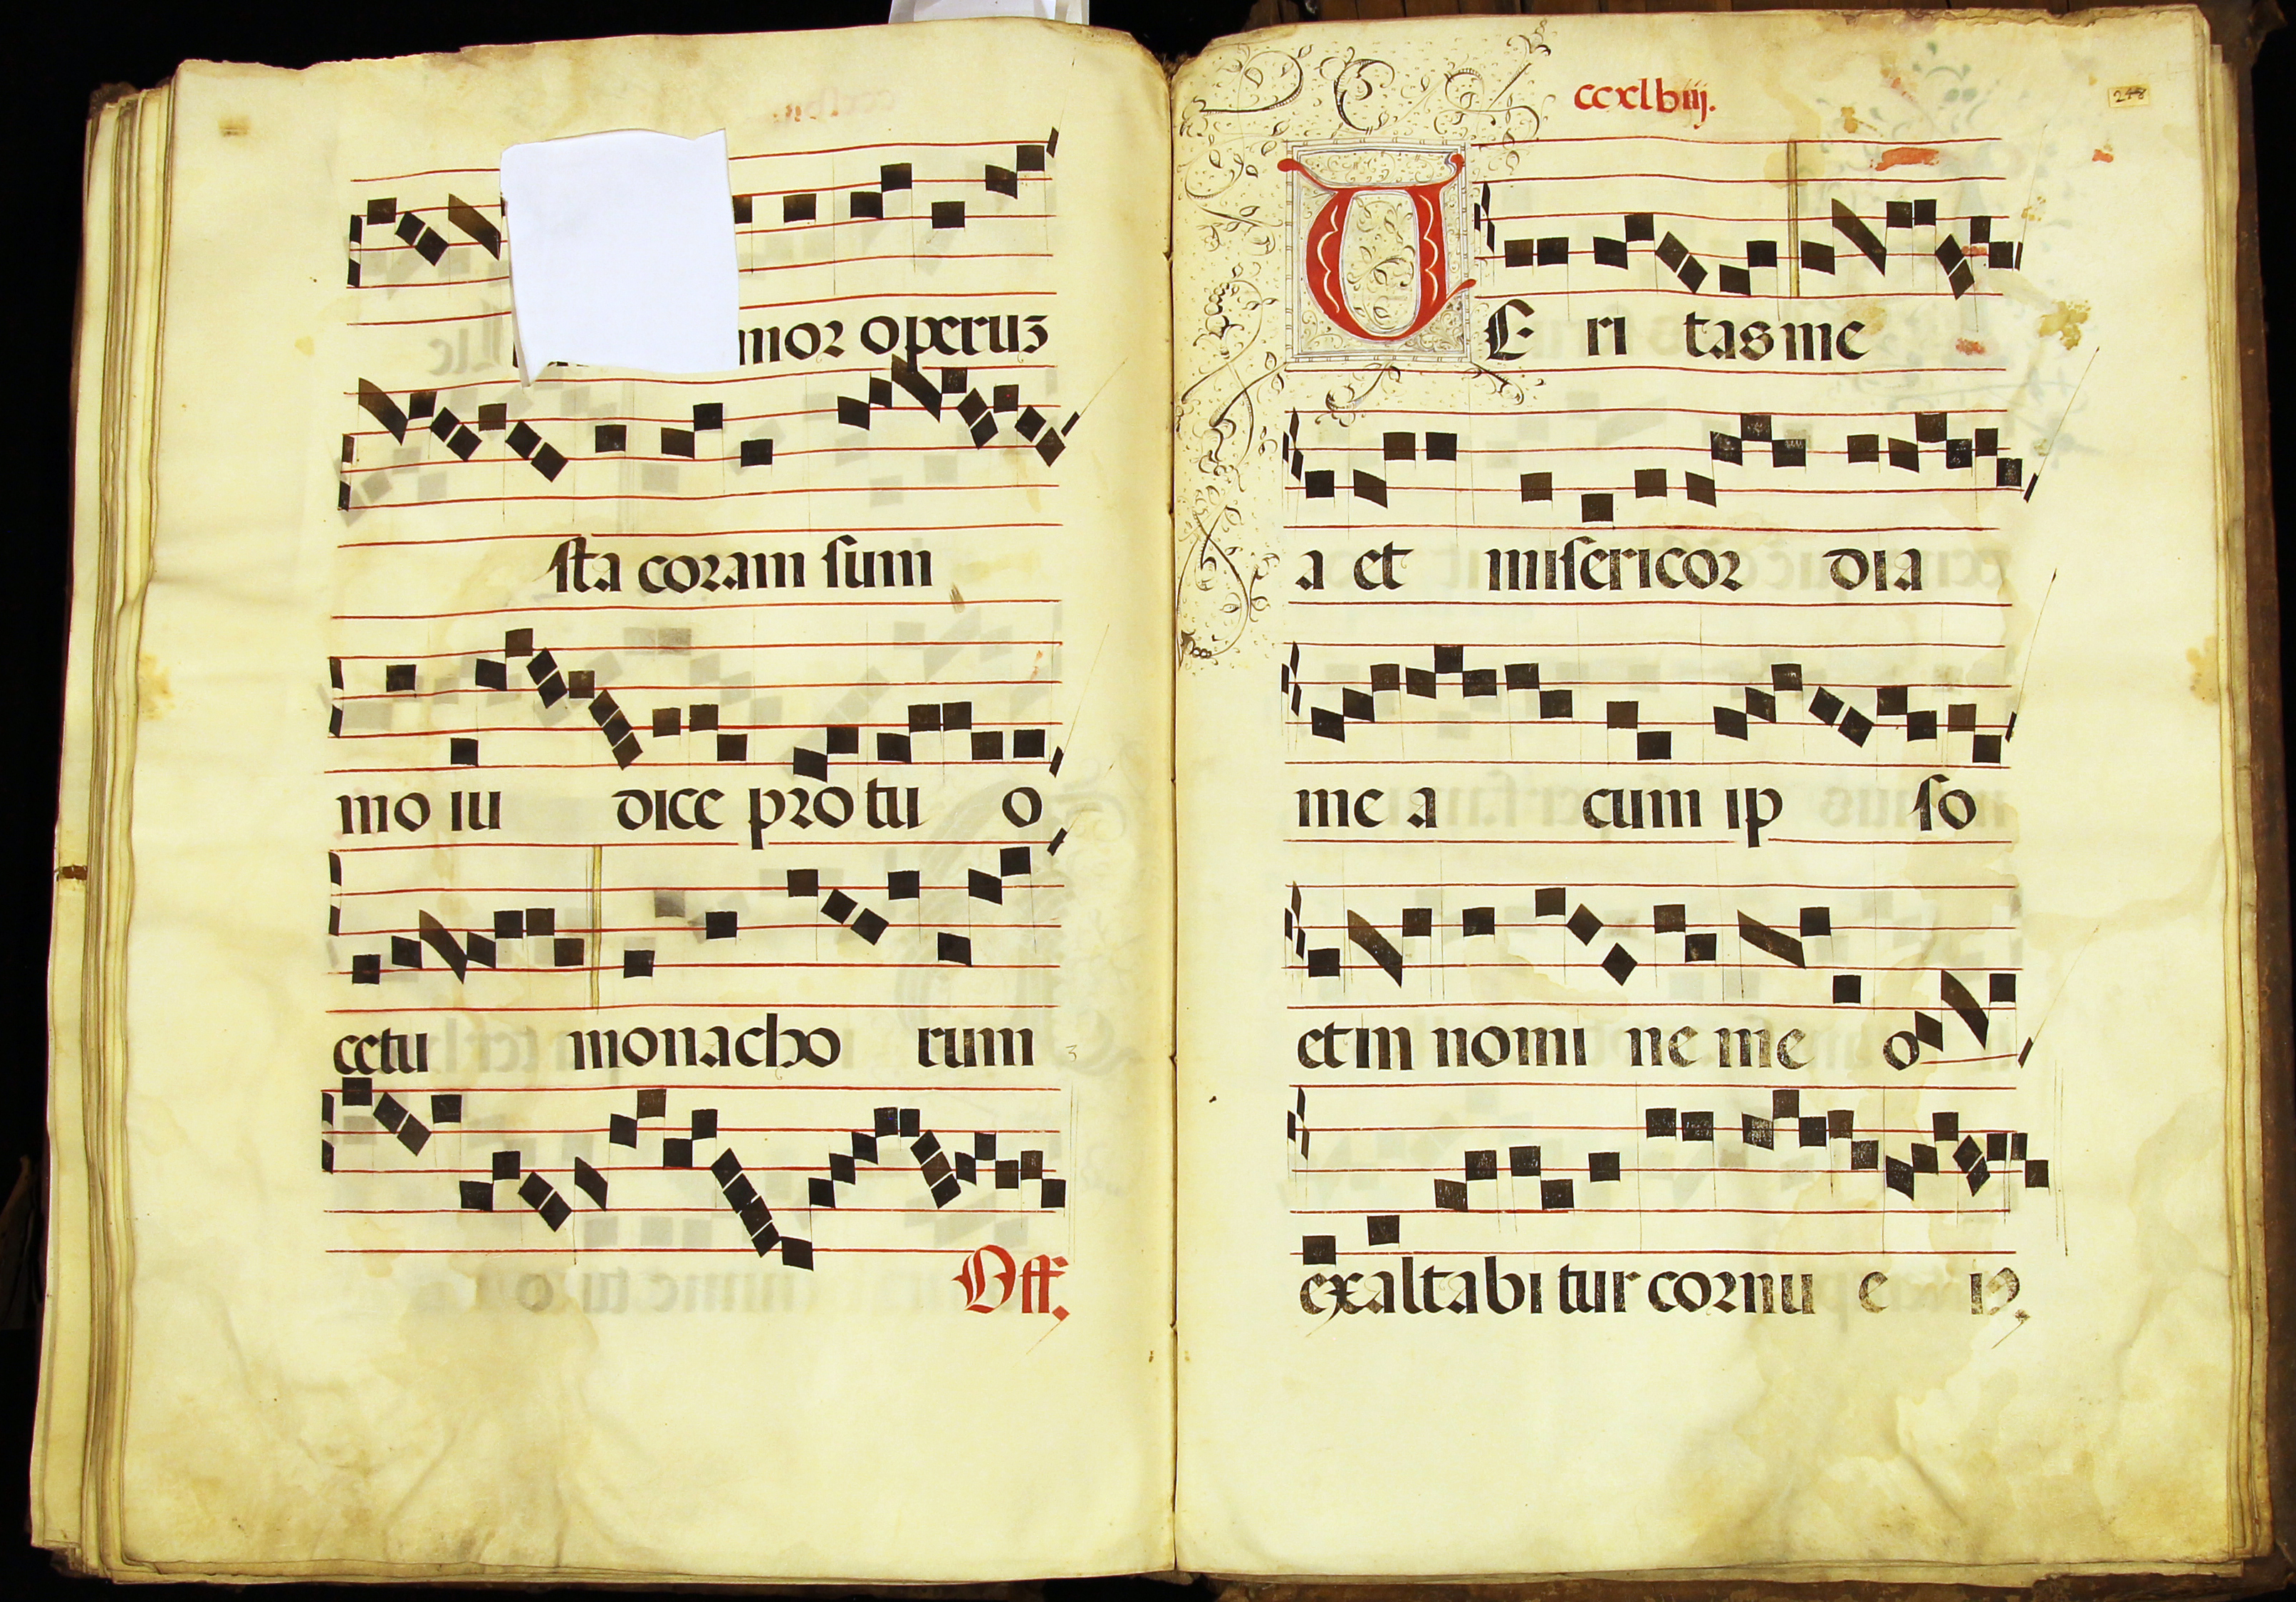 mor operuz
sta coram sum
mo iu dice pro tu o
cetu monacho rum
Off.
ccxlbiij.
248
VE ri tas me
a et misericor dia
me a cum ip so
et in nomi ne me o
exaltabi tur cornu e iꝰ.